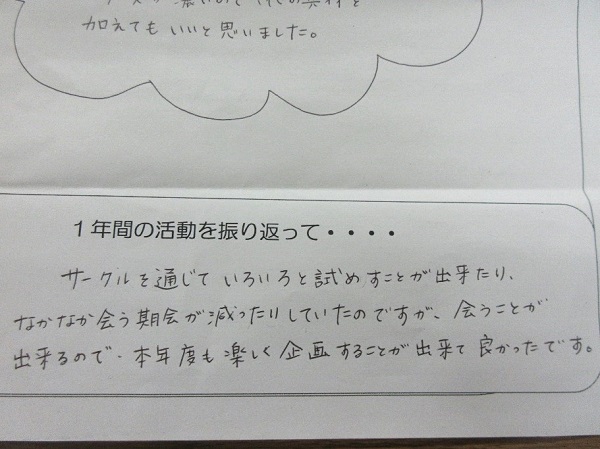 加えてもいいと思いました。
1年間の活動を振り返って・・・・
サークルを通じていろいろと試めすことが出来たり、
なかなか会う期会が減ったりしていたのですが、会うことが
出来るので、本年度も楽しく企画することが出来て良かったです。